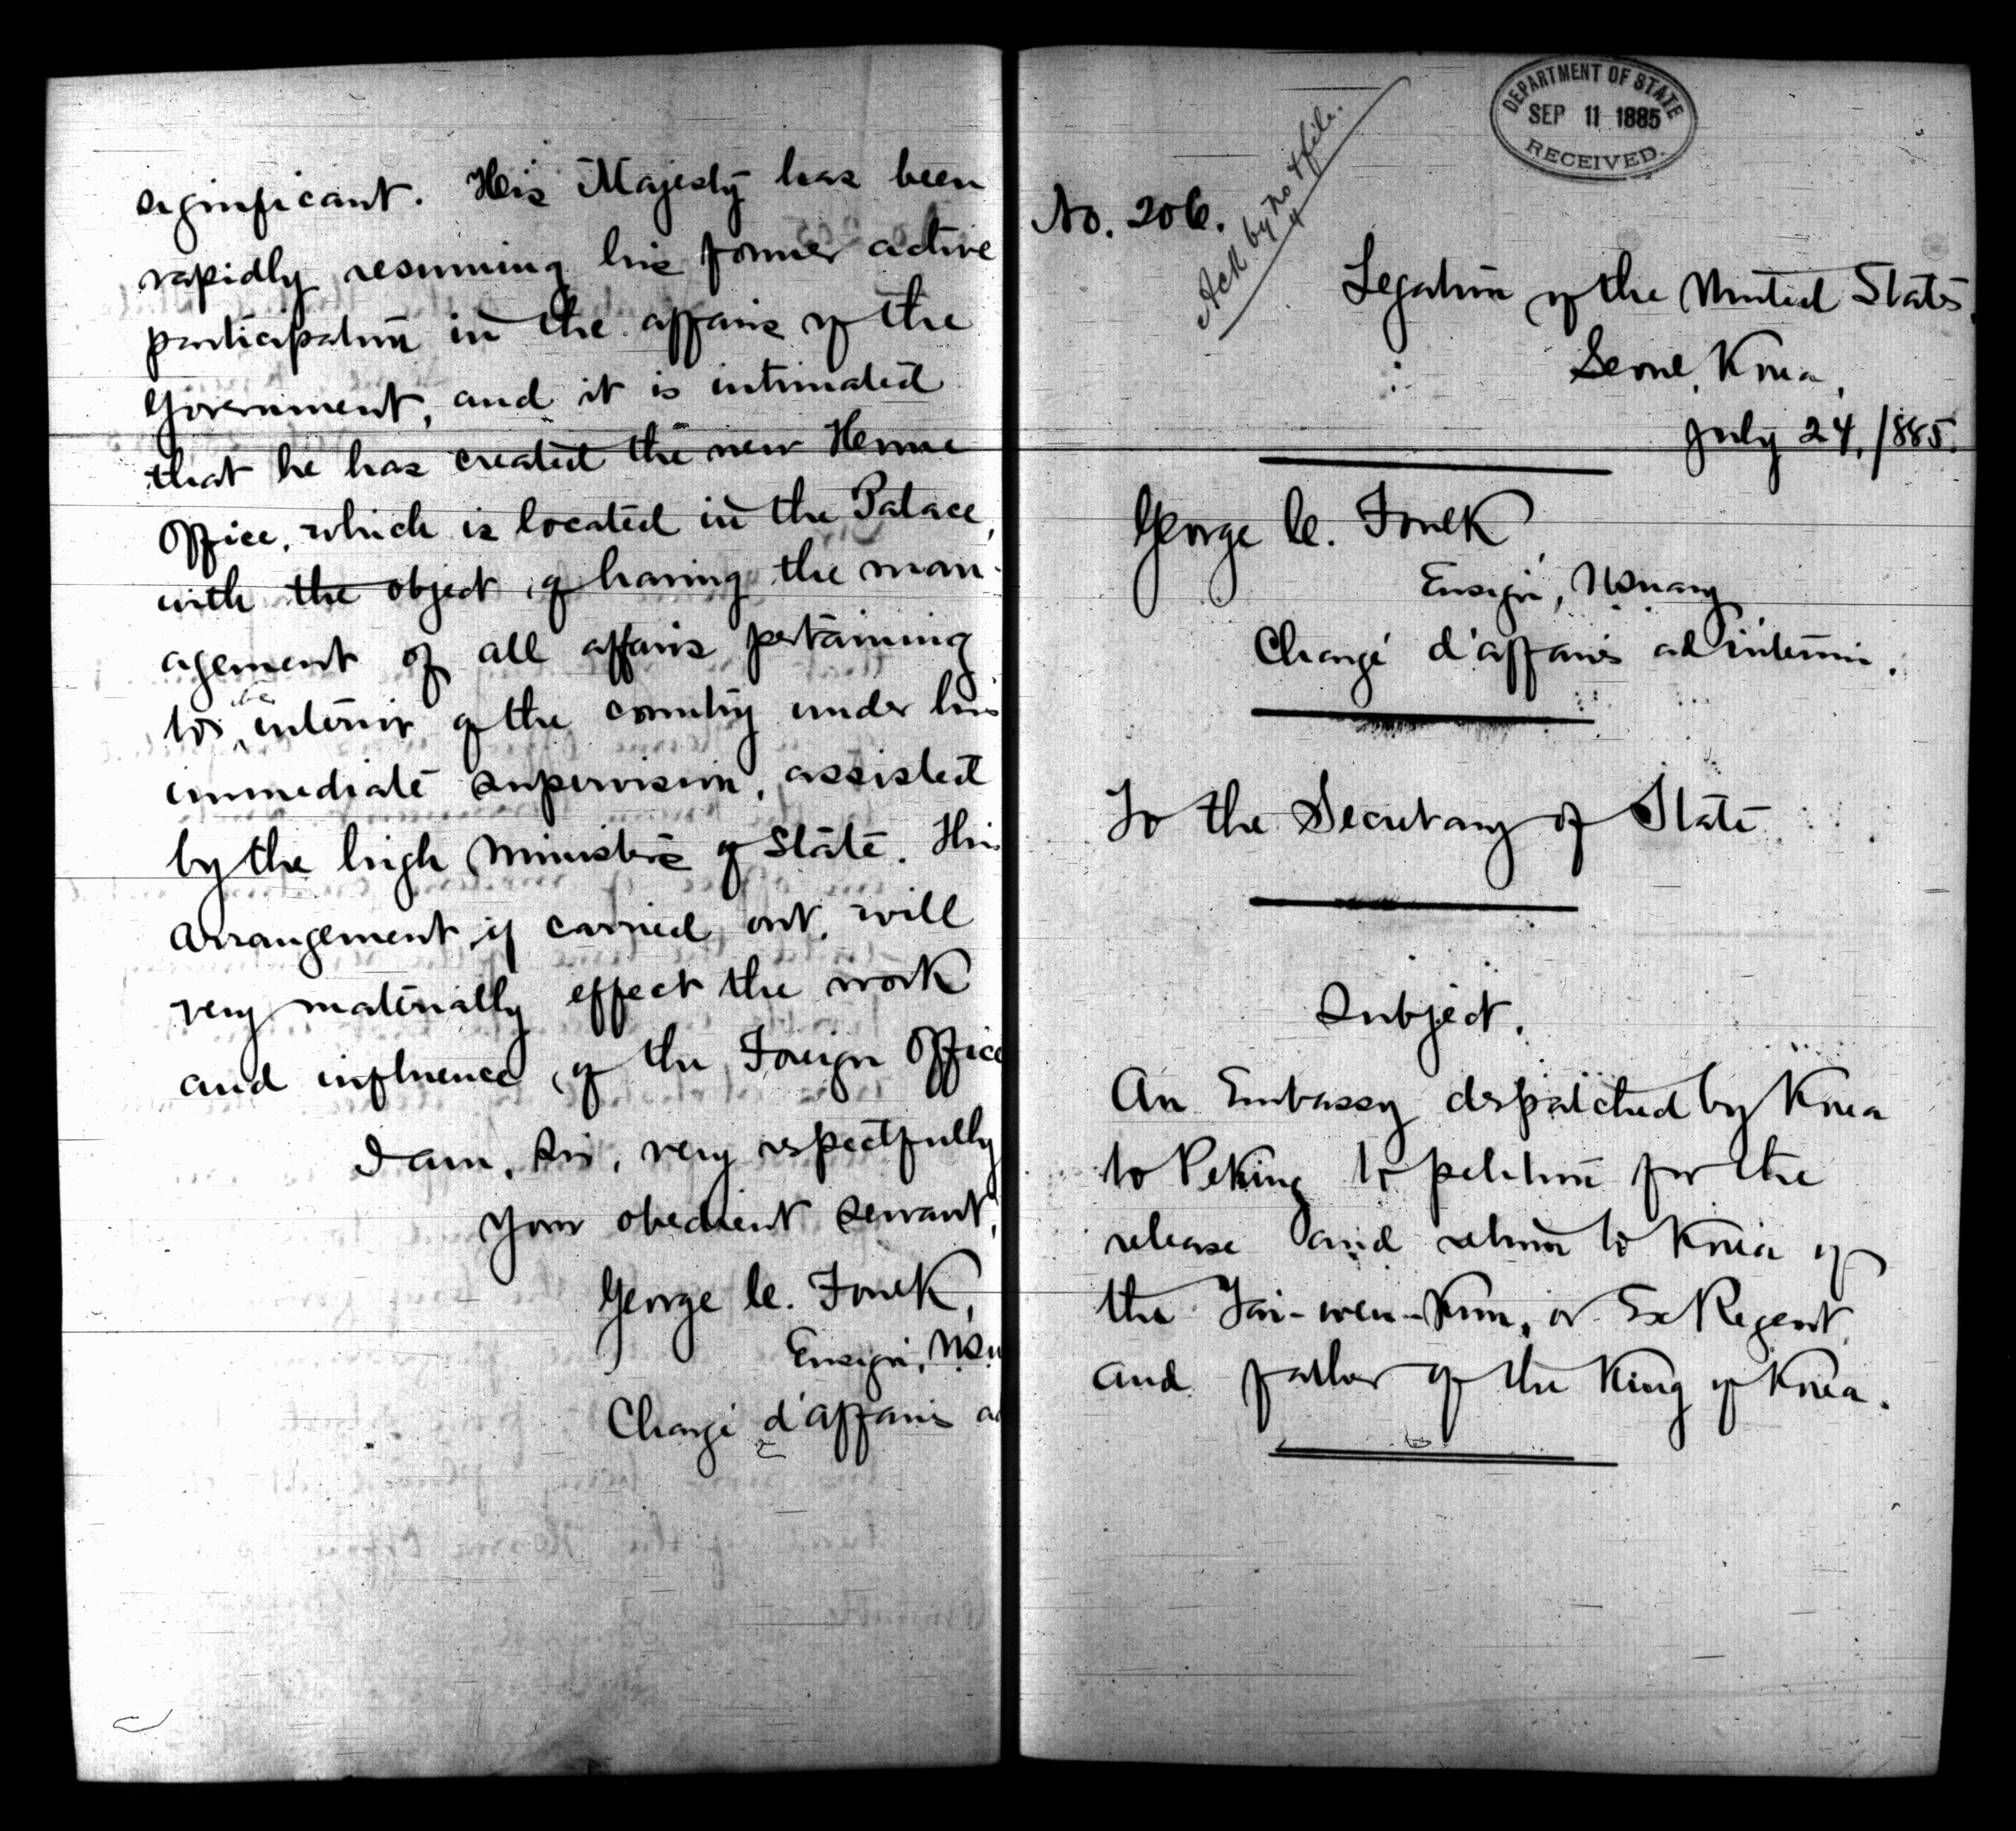 significant. His Majesty has been
rapidly resuming his former active
participation in the affairs of the
Government, and it is intimated
that he has created the new Home
Office, which is located in the Palace,
with the object of having the man-
agement of all affairs pertaining
to the interior of the country under his
immediate supervision, assisted
by the high Ministers of State. This
arrangement, if carried out, will
very materially effect the work
and influence of the Foreign Office
I am, Sir, very respectfully
Your obedient servant,
George C. Foulk,
Ensign, U.S.N
Chargé d'affaires ad
DEPARTMENT OF STATE
SEP 11 1885
RECEIVED.
Ack by No 4 file.
No. 206.
Legation of the United States,
Seoul, Korea,
July 24, 1885.
George C. Foulk
Ensign, U.S. Navy
Chargé d'affaires ad interim.
To the Secretary of State
Subject.
An Embassy despatched by Korea
to Peking to petition for the
release and return to Korea of
the Tai-wen-Kun, or Ex Regent,
and father of the King of Korea.